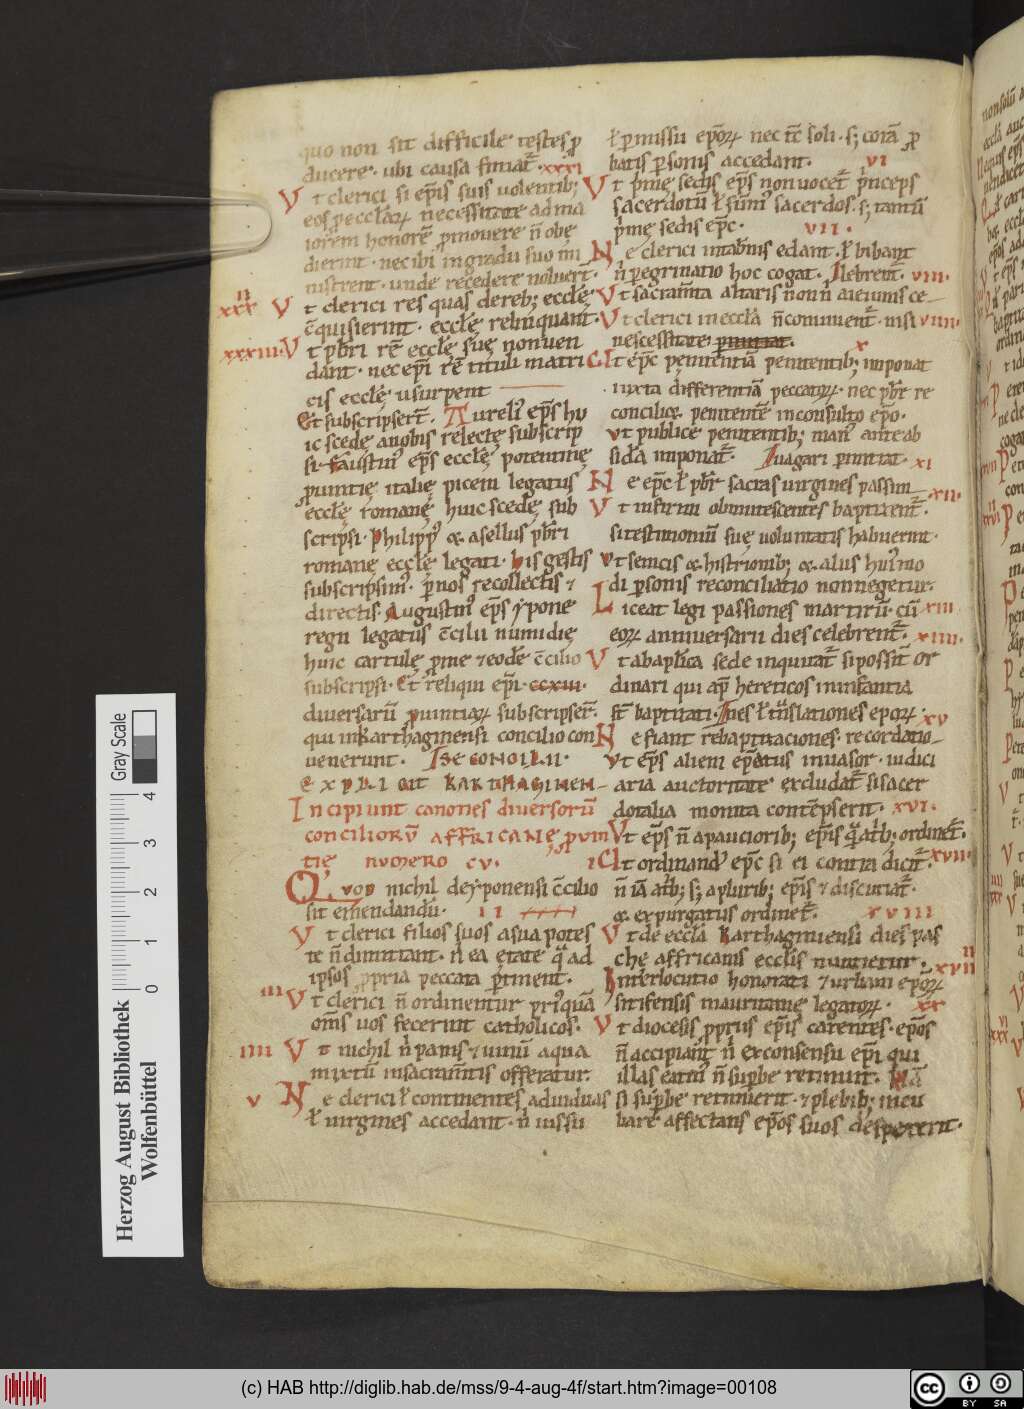 quo non sit difficile testes ꝓ
ducere · ubi causa finiat̃ · xxxi
Vt clerici si ep̃is suis uolentib;
eos ꝓ eccl̃aꝝ necessitate ad ma
iorem honorẽ ꝓmouere ñ obę
dierint · nec ibi in gradu suo mi
nistrent · unde recedere noluert̃ ·
xxxii Vt clerici res quas dereb; ecclę
c̃quisierint · ecclę relinquant̃ ·
xxxiii · Vt p̃bri rẽ ecclę suę non uen
dant · nec ep̃i rẽ tituli matri
cis ecclę usurpent
Et subscripsert̃ · Aureli' ep̃s hu
ic scedę a nobis relectę subscrip
si · Faustin' ep̃s ecclę potentinę
ꝓuintię italię piceni legatus
ecclę romanę huic scedę sub
scripsi · Philipp' & asellus p̃bri
romanę ecclę legati · his gestis
subscripsim' · p̃ nos recollectis ⁊
directis · Augustin' ep̃s yppone
regii legatus c̃cilii numidię
huic cartulę ꝓ me ⁊ eodẽ c̃cilio
subscripsi · Et reliqui ep̃i · ccxiii ·
diuersarũ ꝓuintiaꝝ subscripser̃ ·
qui in karthaginensi concilio con
uenerunt ·
EXPLICIT KARTHAGINEN
Incipiunt canones diuersorũ
conciliorũ affricanę ꝓuin
tię numero cv ·
i
Quod nichil de yponensi c̃cilio
sit emendandũ · ii
Vt clerici filios suos a sua potes
te ñ dimittant · n ea etate q̃ ad
ipsos ꝓpria peccata ꝑtinent ·
iii Vt clerici ñ ordinentur pri'quã
om̃s uos fecerint catholicos ·
iiii Vt nichil ñ panis ⁊ uinũ aqua
mixtũ in sacram̃tis offeratur ·
v Ne clerici ł continentes ad uiduas
ł uirgines accedant · ñ iussu
ł ꝑmissu ep̃oꝝ nec tc̃ soli · s; coiã ꝓ
batis ꝑsonis accedant · vi
Vt p̃mę sedis ep̃s non uocet̃ p̃nceps
sacerdotũ ł sũm' sacerdos · s; tantũ
p̃mę sedis ep̃c · vii ·
Ne clerici in tab̃nis edant · ł bibant
ñ ꝑegrinatio hoc cogat · viii ·
Vt sacram̃ta altaris non ñ a ieiunis ce
Vt clerici in eccl̃a ñ conuiuent̃ · nisi viiii ·
nescessitate x
Ut ep̃c pęnitentiã penitentib; imponat
iuxta differentiã peccatoꝝ · nec p̃br re
conciliet penitentẽ inconsulto ep̃o ·
ut publice penitentib; man' ante ab
sida imponat̃ · uagari ꝑmittat · xi
Ne ep̃c ł p̃br sacras uirgines passim
xii · Vt infirmi obmutescentes baptizent̃ ·
si testimoniũ suę uoluntatis habuerint ·
Vt scenicis & histrionib; & aliis hui'mo
di ꝑsonis reconciliatio non negetur ·
Liceat legi passiones martirũ · cũ xiii
eoꝝ anniuersarii dies celebrent̃ · xiiii ·
Vt ab ap̃lica sede inquirat̃ si possint̃ or
dinari qui ap̃ hereticos in infantia
st̃ baptizati · xv
Ne fiant rebaptizaciones · recordatio
Vt ep̃s alieni ep̃atus inuasor · iudici
aria auctoritate excludat̃ si sacer
dotalia monita contẽpserit · xvi ·
Vt ep̃s ñ a pauciorib; ep̃is q̃ atb; ordinet̃ ·
Ut ordinand' ep̃c si ei contra dicit̃ · xvii
ñ iã atb; s; a plurib; ep̃is ⁊ discutiat̃ ·
& expurgatus ordinet̃ · xviii
Vt de eccl̃a karthaginensi dies pas
chę affricanis ecclis nuntietur ·
Interlocutio honorati ⁊ urbani ep̃oꝝ
sitifensis mauritanię legatoꝝ · xx
Vt diocesis ꝓprius ep̃is carentes · ep̃os
ñ accipiant̃ ñ ex consensu ep̃i qui
illas eatin' ñ suꝑbe retinuit ·
si suꝑbe retinuerit · ⁊ plebib; incu
bare affectans ep̃os suos despexerit ·
Herzog August Bibliothek
Wolfenbüttel
Gray Scale
0 1 2 3 4
(c) HAB http://diglib.hab.de/mss/9-4-aug-4f/start.htm?image=00108
cc BY SA